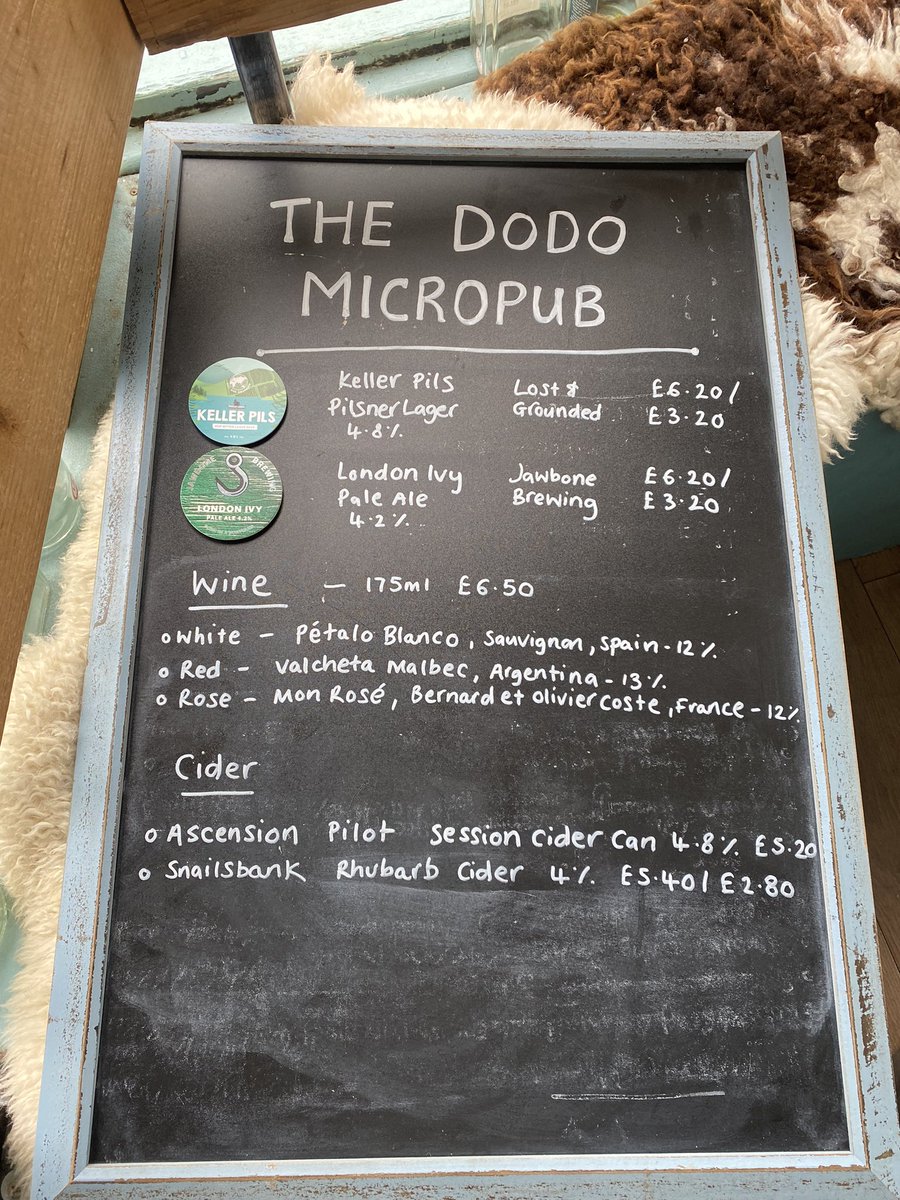 THE DODO
MICROPUB
KELLER PILS
Keller Pils Lost & £6.20/
Pilsner Lager Grounded £3.20
4.8%
JAWBONE BREWING
LONDON IVY
PALE ALE 4.2%
London Ivy Jawbone £6.20/
Pale Ale Brewing £3.20
4.2%
Wine — 175ml £6.50
White - Pétalo Blanco, Sauvignon, Spain - 12%
Red - Valcheta Malbec, Argentina - 13%
Rose - Mon Rosé, Bernard et Olivier Coste, France - 12%
Cider
Ascension Pilot Session Cider Can 4.8% £5.20
Snailsbank Rhubarb Cider 4% £5.40/£2.80